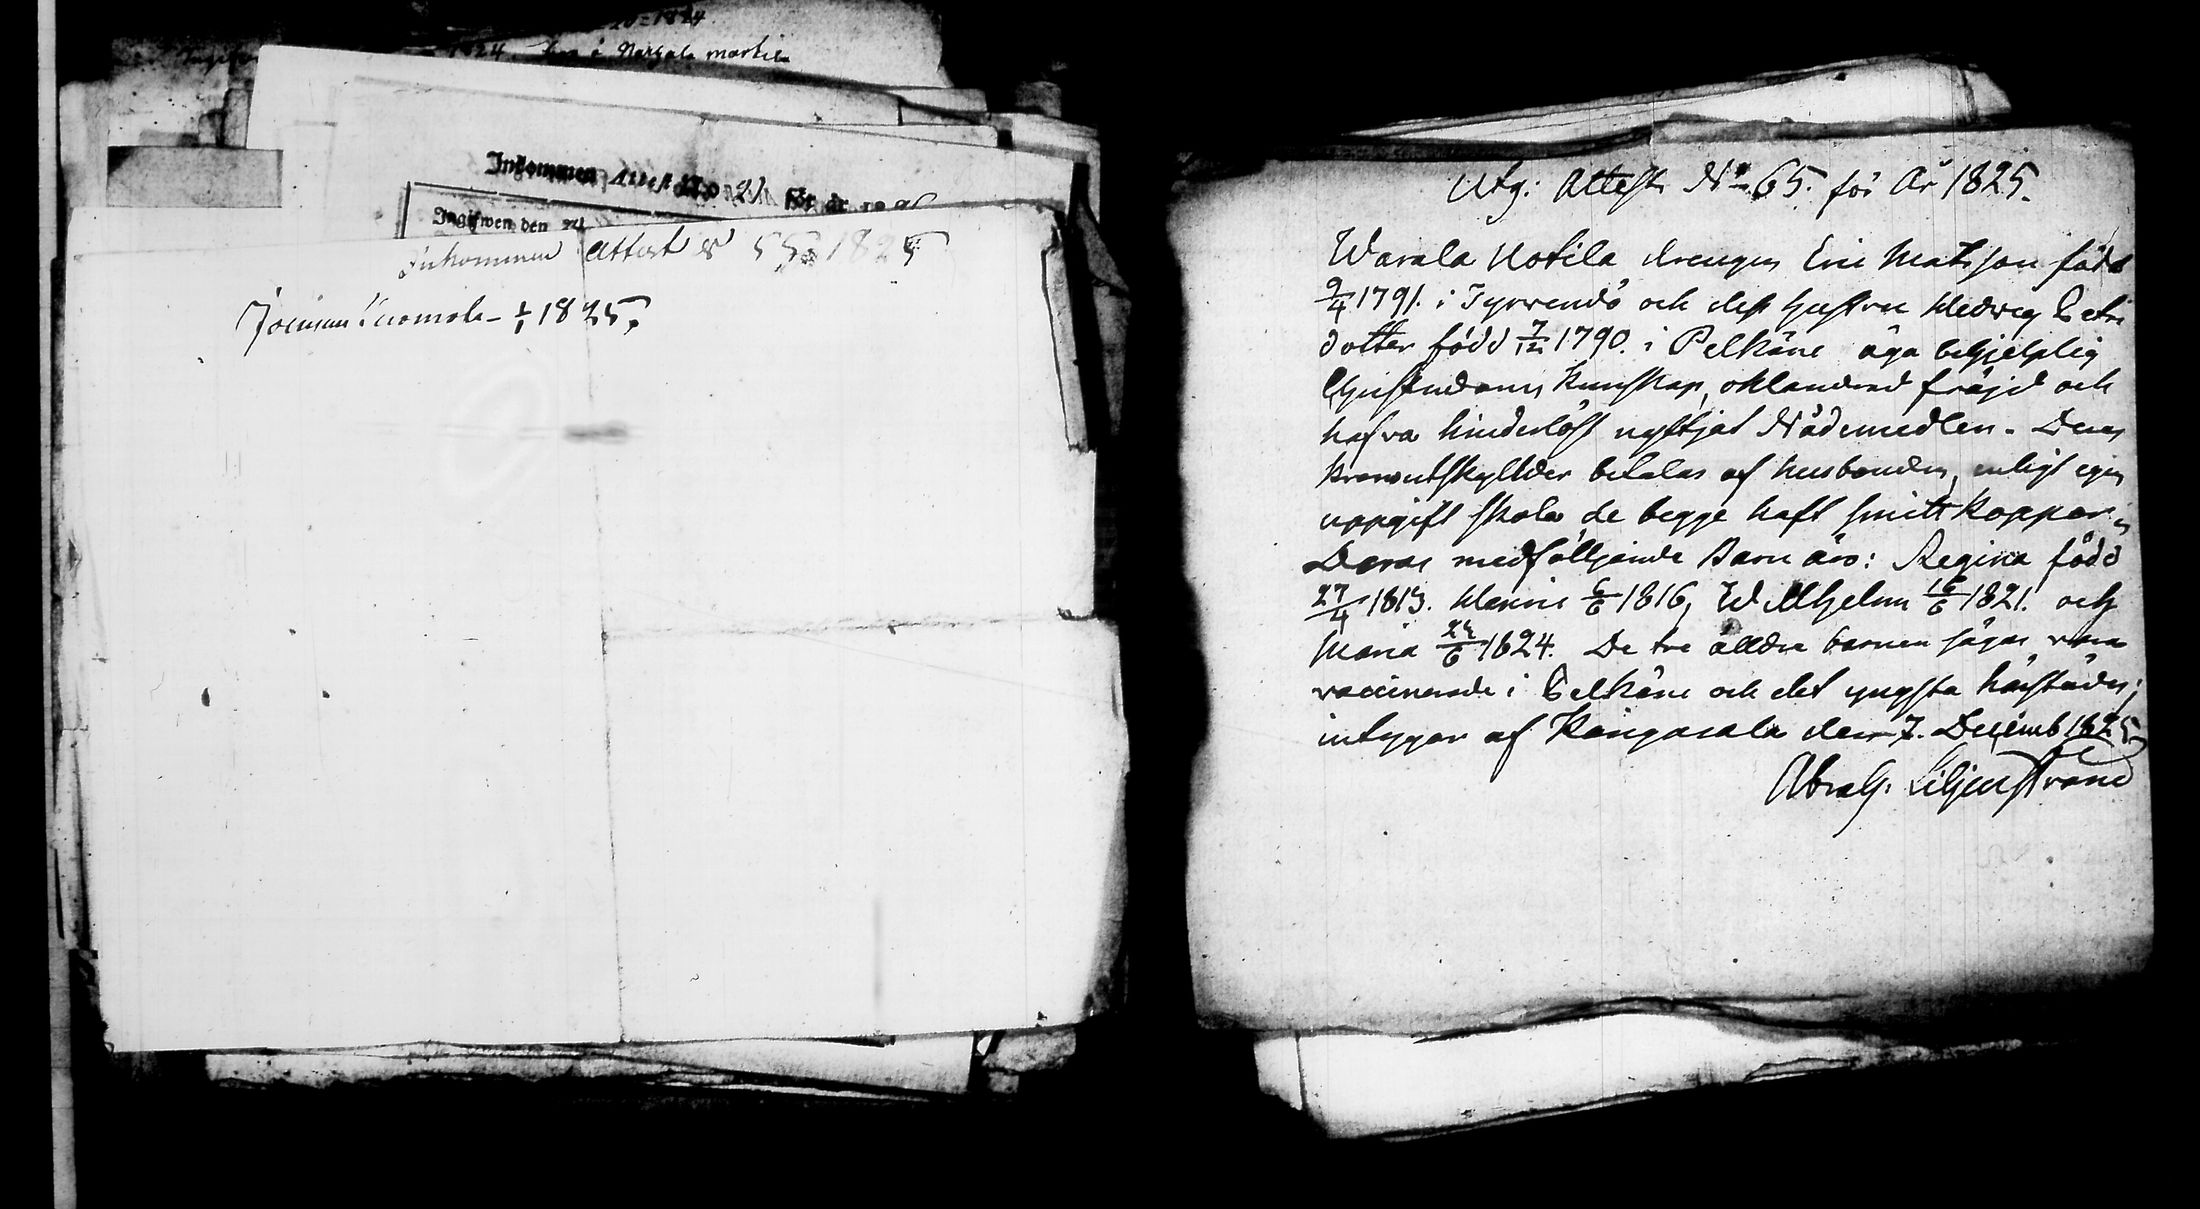 20=1824
1824
Inkommen Attest No 21 för år
Ingifwen den
Inkommen Attest N 55 1825
1/1 1825.
Utg: Attest No 65. för År 1825.
Warala Uotila drengen Eric Matsson född
9/4 1791. i Tyrvendö och dess hustru Hedvig Petri
dotter född 7/12 1790. i Pelkäne äga behjelplig
Christendoms kunskap, oklandrad fräjd och
hafva hinderlöst nyttjat Nådemedlen. Deras
Kronoutskyllder betalas af husbonden, enligt egen
uppgift skola de begge haft smitt koppor.
Deras medfölljande Barn äro: Regina född
27/4 1813. Henric 6/6 1816, Willhjelm 16/6 1821. och
Maria 24/6 1824. De tre älldre barnen sägas vara
vaccinerade i Pelkäne och det yngsta härstädes;
intygar af Kangasala den 7. Decemb 1825
Abrah. Liljenstrand